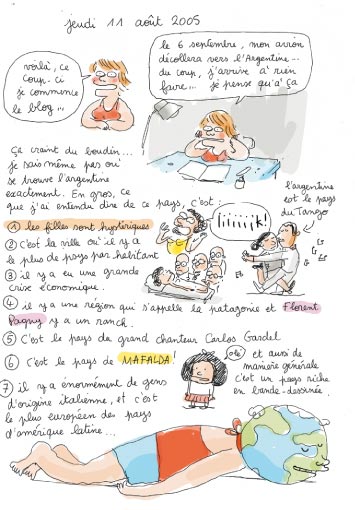 jeudi 11 août 2005
voilà, ce
coup-ci
je commence
le blog...
le 6 septembre, mon avion
décollera vers l'Argentine...
du coup, j'arrive à rien
faire... je pense qu'à ça
ça craint du boudin...
je sais même pas où
se trouve l'argentine
exactement. En gros, ce
que j'ai entendu dire de ce pays, c'est :
① les filles sont hystériques
② C'est la ville où il y a
le plus de psys par habitant
③ il y a eu une grande
crise économique.
iiiiiik!
l'argentine
est le pays
du Tango
④ il y a une région qui s'appelle la patagonie et Florent
Pagny y a un ranch.
⑤ C'est le pays du grand chanteur Carlos Gardel
⑥ C'est le pays de MAFALDA!
olé
et aussi de
manière générale
c'est un pays riche
en bande-dessinée.
⑦ il y a énormément de gens
d'origine italienne, et c'est
le plus européen des pays
d'amérique latine...